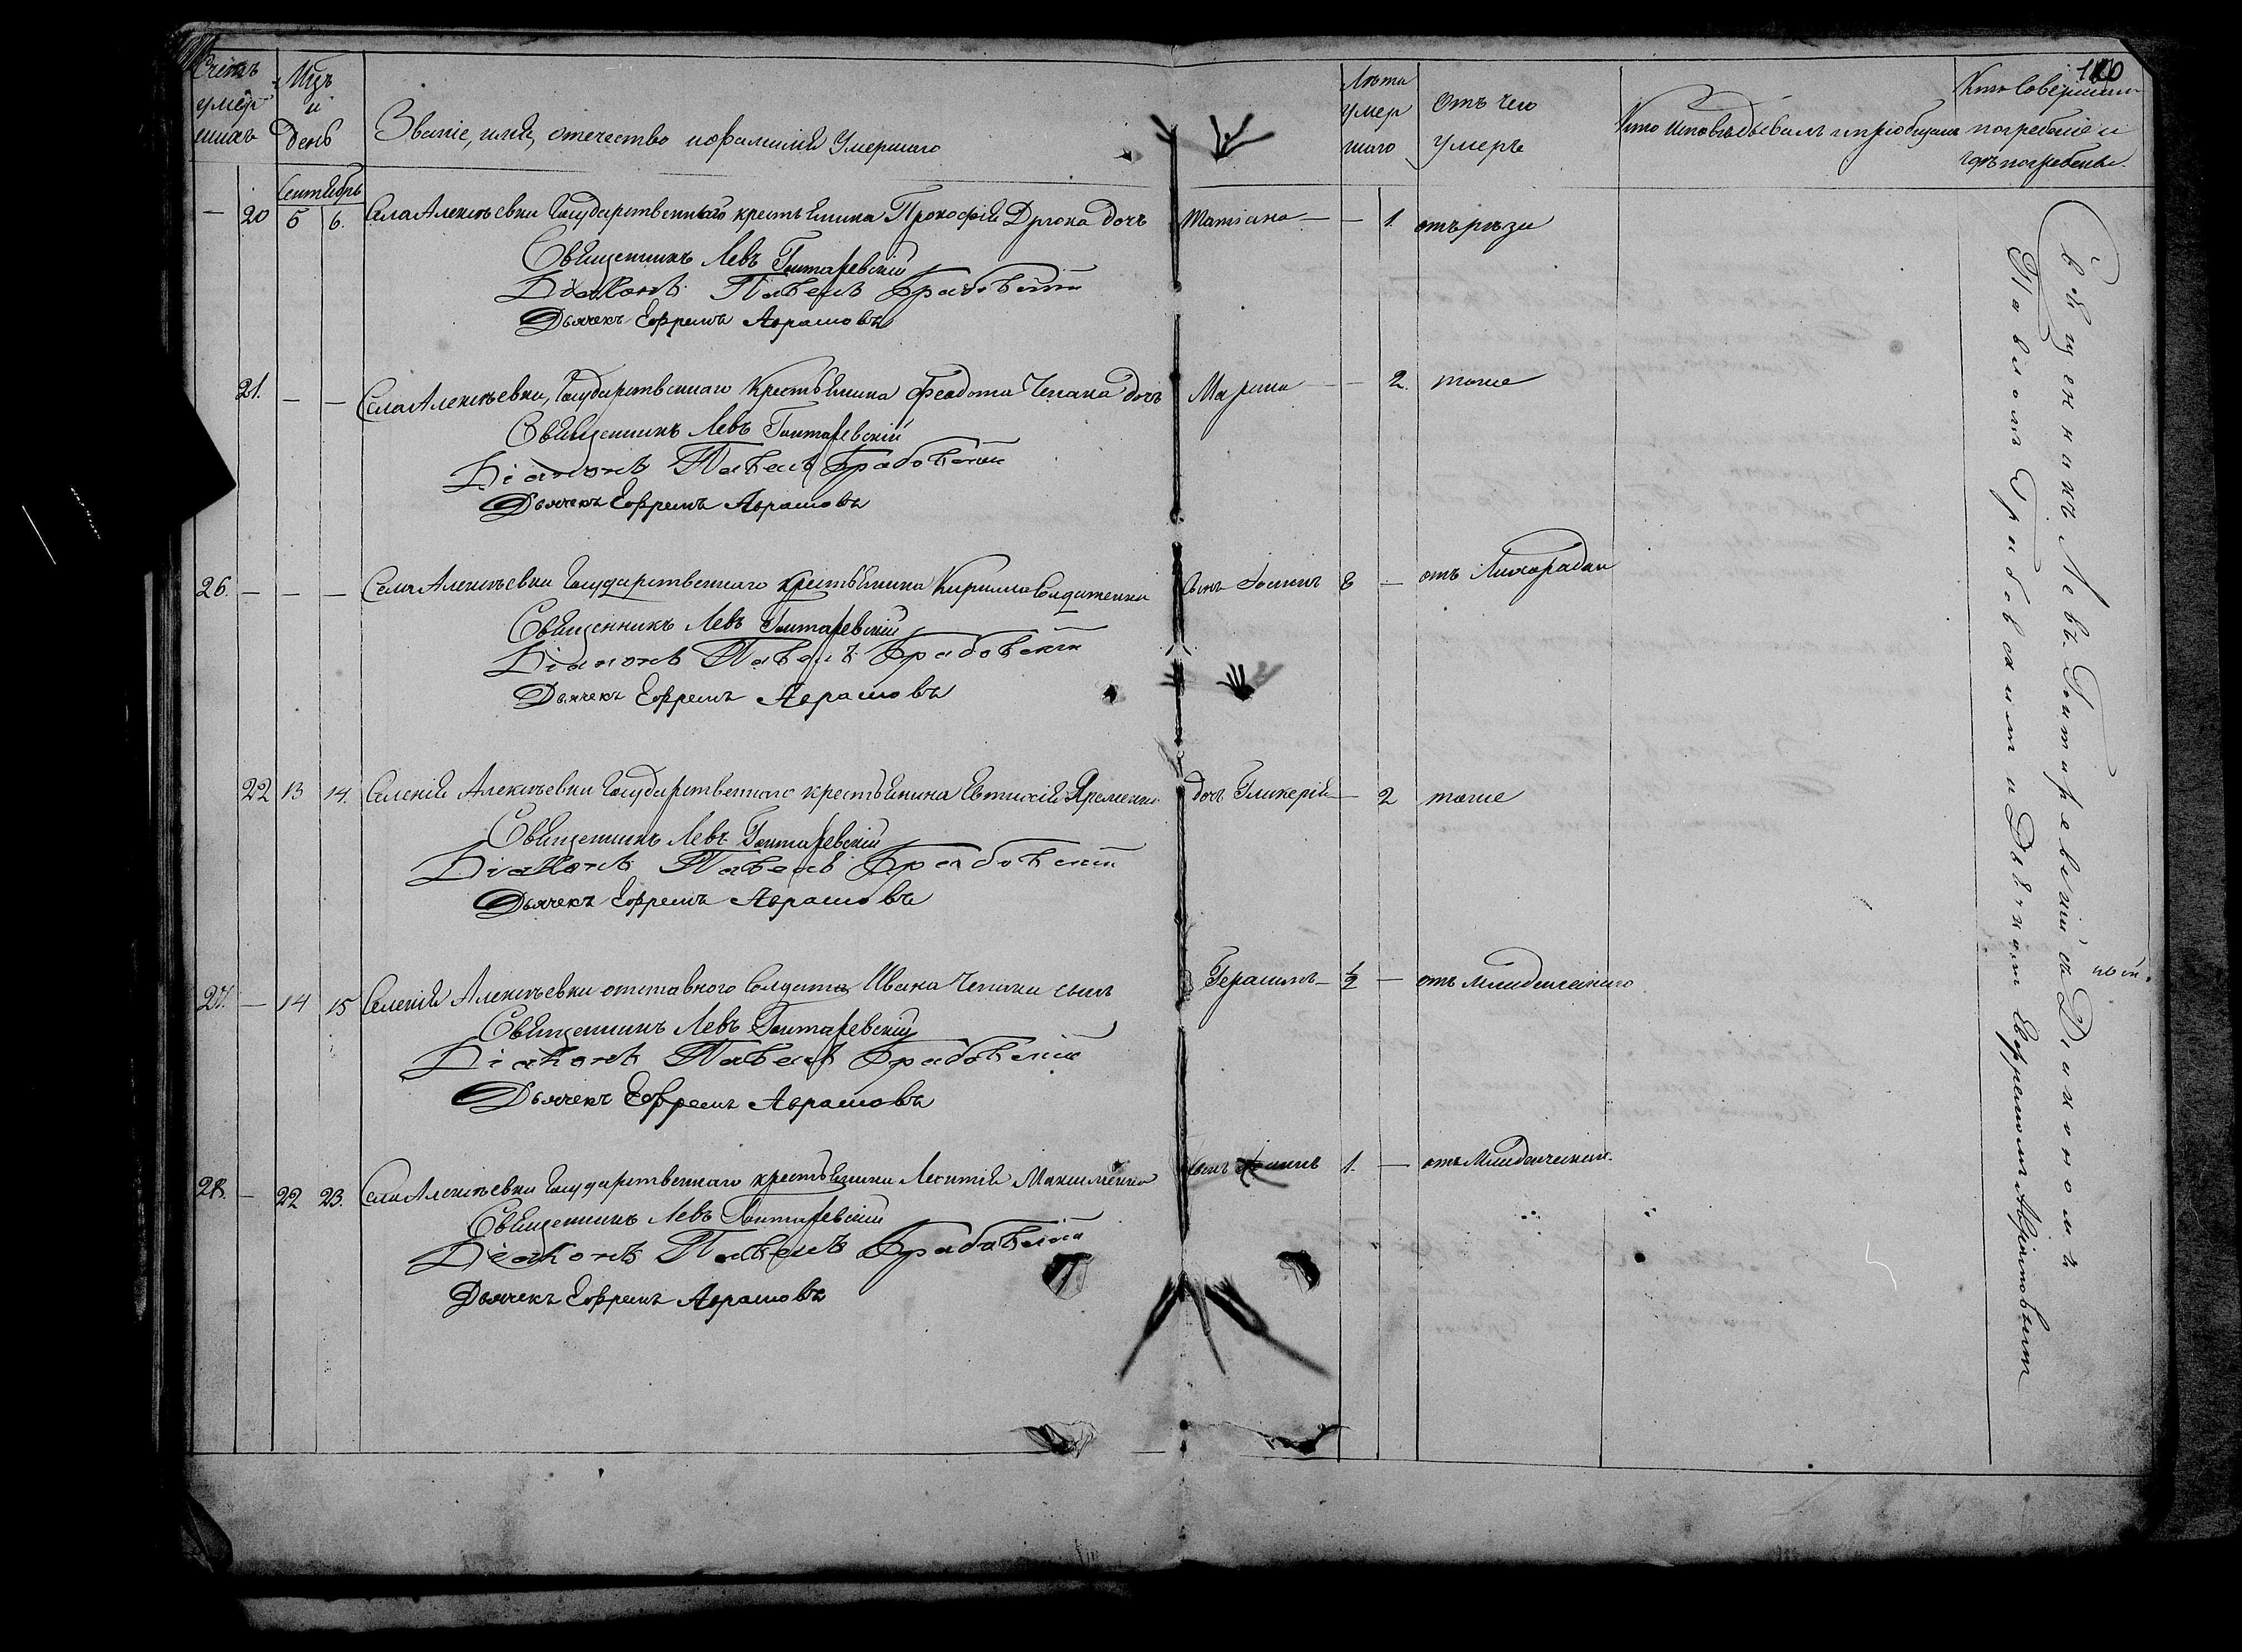 Счетъ умершихъ
Мцъ и день
Званіе, имя, отечество и фамилія Умершаго
Лѣта Умершаго
Отъ чего Умеръ
Кто исповѣдывалъ и пріобщалъ
Кто совершалъ погребеніе и гдѣ погребены.
Сентябрь
— 20 5 6. Села Алексѣевки Государственнаго крестьянина Прокофія дочь Татіана — — 1.
Священникъ Левъ Гонтаревскій
Діаконъ Павелъ Грабовскій
Дьячекъ Ефремъ Аврамовъ
21. — — Села Алексѣевки, Государственнаго Крестьянина Феодота Чепака дочь Марина — — 2. тоже
Священникъ Левъ Гонтаревскій
Діаконъ Павелъ Грабовскій
Дьячекъ Ефремъ Аврамовъ
26. — — — Села Алексѣевки Государственнаго крестьянина Кирилла Солдатенка сынъ Іоаннъ — отъ Лихорадки
Священникъ Левъ Гонтаревскій
Діаконъ Павелъ Грабовскій
Дьячекъ Ефремъ Аврамовъ
22 13 14. Селенія Алексѣевки Государственнаго крестьянина Евтихія Яременка дочь Гликерія — 2 тоже
Священникъ Левъ Гонтаревскій
Діаконъ Павелъ Грабовскій
Дьячекъ Ефремъ Аврамовъ
27. — 14 15 Селенія Алексѣевки отставного Солдата Ивана Чепака сынъ Герасимъ — 1/2 — отъ младенческаго
Священникъ Левъ Гонтаревскій
Діаконъ Павелъ Грабовскій
Дьячекъ Ефремъ Аврамовъ
28. — 22 23. Села Алексѣевки Государственнаго крестьянина Леонтія Максименка сынъ Іоаннъ 1. — отъ младенческой.
Священникъ Левъ Гонтаревскій
Діаконъ Павелъ Грабовскій
Дьячекъ Ефремъ Аврамовъ
Священникъ Левъ Гонтаревскій съ Діакономъ
Павломъ Грабовскимъ и Дьячкомъ Ефремомъ Аврамовымъ